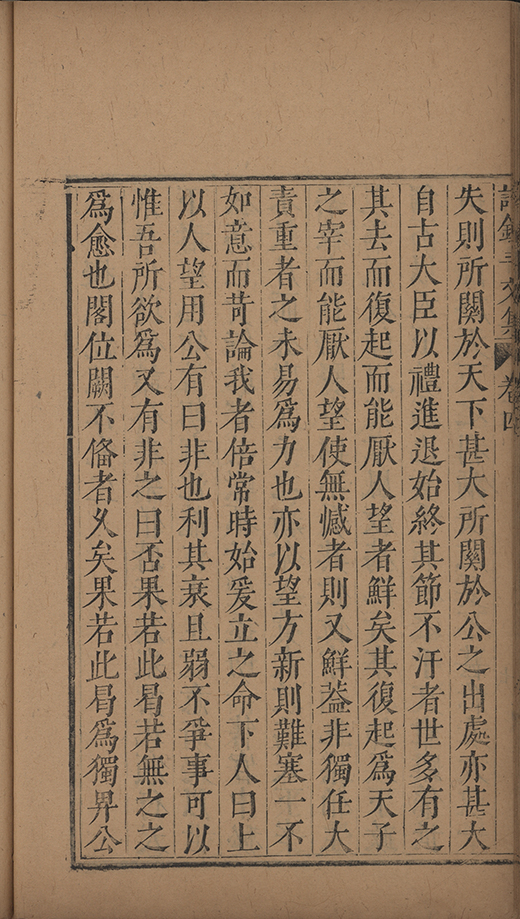 文集 卷四
失則所關於天下甚大所關於公之出處亦甚大
自古大臣以禮進退始終其節不汙者世多有之
其去而復起而能厭人望者鮮矣其復起爲天子
之宰而能厭人望使無憾者則又鮮葢非獨任大
責重者之未易爲力也亦以望方新則難塞一不
如意而苛論我者倍常時始爰立之命下人曰上
以人望用公有曰非也利其衰且弱不爭事可以
惟吾所欲爲又有非之曰否果若此曷若無之之
爲愈也閣位闕不俻者久矣果若此曷爲獨畀公